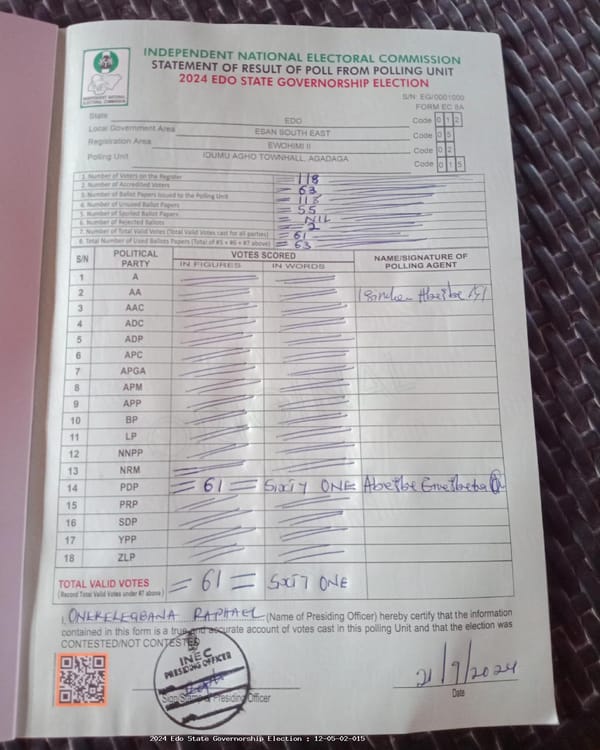 INDEPENDENT NATIONAL ELECTORAL COMMISSION
STATEMENT OF RESULT OF POLL FROM POLLING UNIT
2024 EDO STATE GOVERNORSHIP ELECTION
S/N: EG/0001000
FORM EC 8A
INDEPENDENT NATIONAL ELECTORAL COMMISSION
State EDO Code 0 1 2
Local Government Area ESAN SOUTH EAST Code 0 5
Registration Area EWOHIMI II Code 0 2
Polling Unit IDUMU AGHO TOWNHALL, AGADAGA Code 0 1 5
1. Number of Voters on the Register 118
2. Number of Accredited Voters = 63
3. Number of Ballot Papers Issued to the Polling Unit = 118
4. Number of Unused Ballot Papers = 55
5. Number of Spoiled Ballot Papers = NIL
6. Number of Rejected Ballots = 2
7. Number of Total Valid Votes (Total Valid Votes cast for all parties) = 61
8. Total Number of Used Ballots Papers (Total of #5 + #6 + #7 above) = 63
S/N POLITICAL PARTY VOTES SCORED NAME/SIGNATURE OF POLLING AGENT
IN FIGURES IN WORDS
1 A
2 AA
3 AAC
4 ADC
5 ADP
6 APC
7 APGA
8 APM
9 APP
10 BP
11 LP
12 NNPP
13 NRM
14 PDP = 61 = SIXTY ONE
15 PRP
16 SDP
17 YPP
18 ZLP
TOTAL VALID VOTES = 61 = SIXTY ONE
(Record Total Valid Votes under #7 above)
I, ONEKELEGBANA RAPHAEL (Name of Presiding Officer) hereby certify that the information
contained in this form is a true and accurate account of votes cast in this polling Unit and that the election was
CONTESTED/NOT CONTESTED
INEC
PRESIDING OFFICER
Sign/Stamp of Presiding Officer
21/9/2024
Date
2024 Edo State Governorship Election : 12-05-02-015